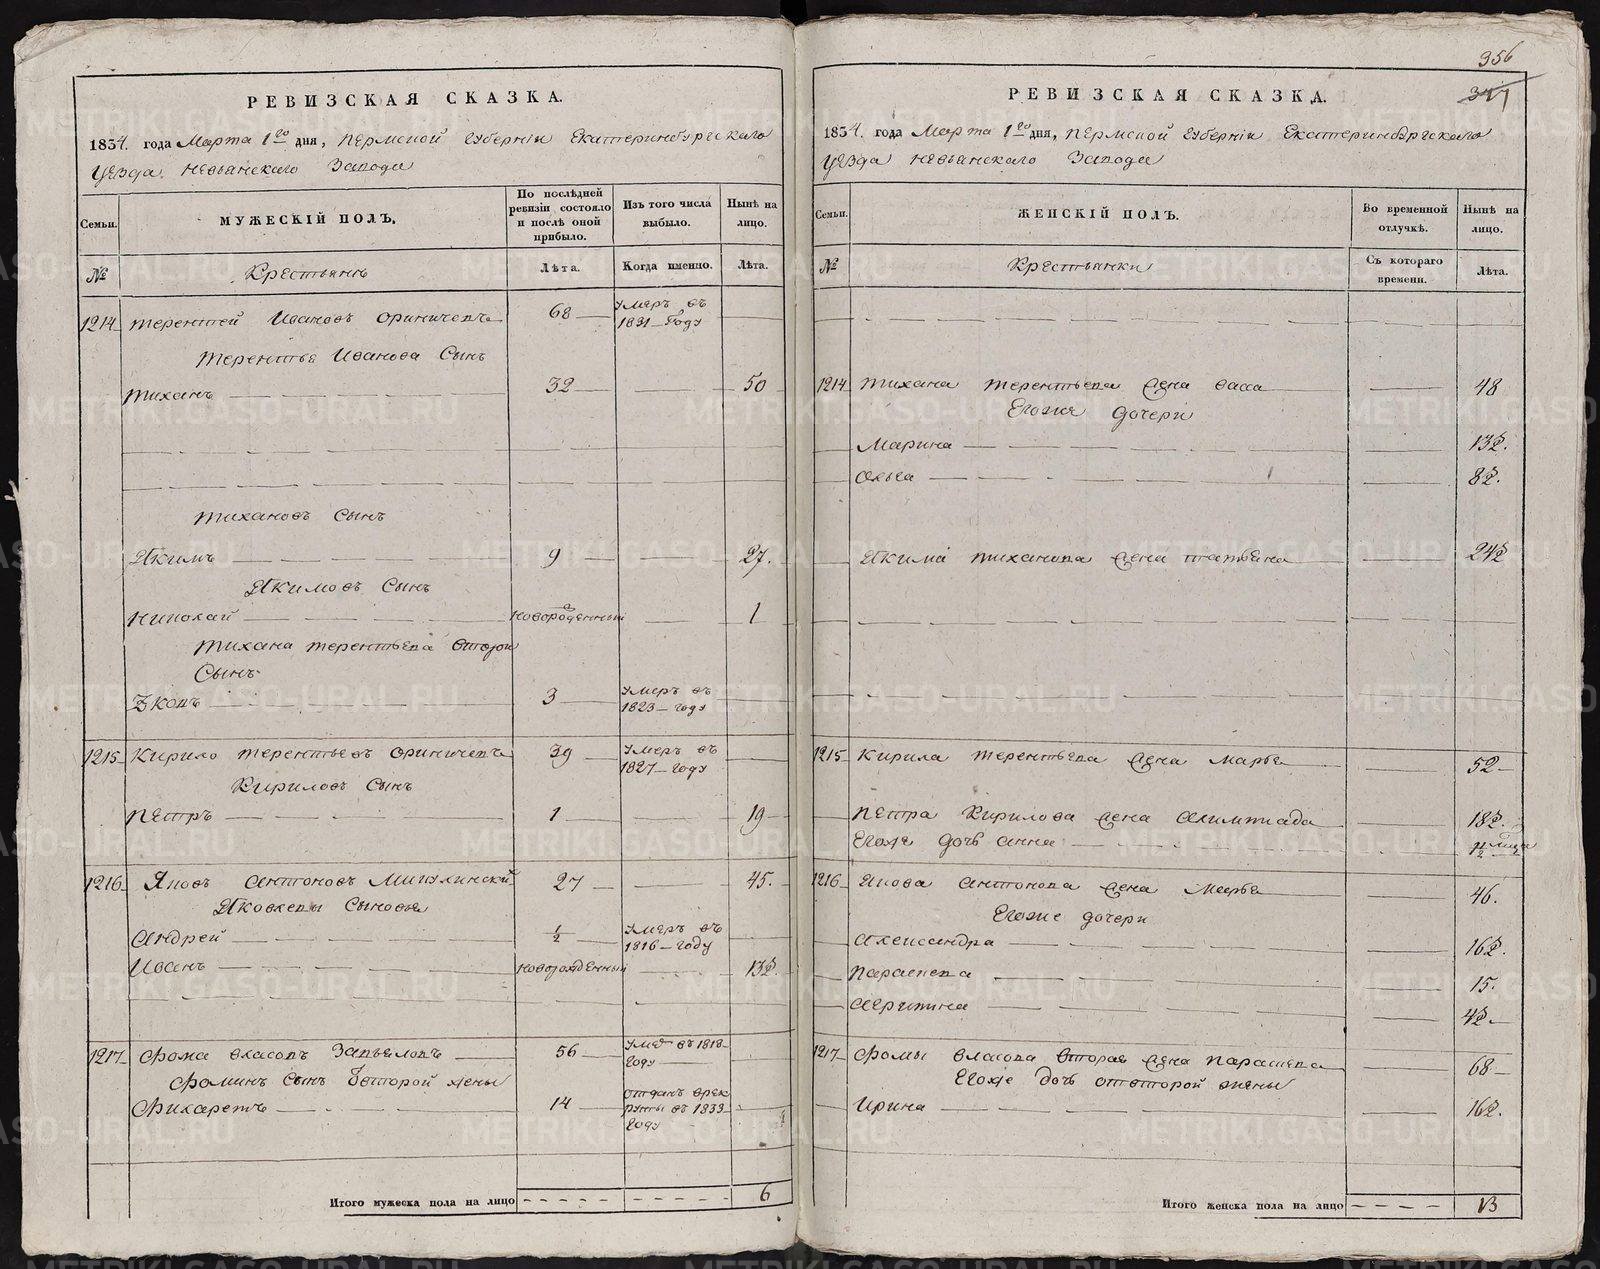 РЕВИЗСКАЯ СКАЗКА.
1834. года Марта 1го дня, Пермской губернiи Екатеринбургскаго
уезда Невьянскаго Завода
Семьи.
МУЖЕСКIЙ ПОЛЪ.
По послѣдней ревизiи состояло и послѣ оной прибыло.
Изъ того числа выбыло.
Нынѣ на лицо.
№
Крестьянъ
Лѣта.
Когда именно.
Лѣта.
1214 Терентей Ивановъ 68 умеръ въ 1831 Году
Терентья Иванова Сынъ
Тиханъ 32 50
Тихановъ Сынъ
Якимъ 9 27.
Якимовъ Сынъ
Николай новорожденный 1
Тихана Терентьева второй
Сынъ
3 умеръ въ 1823 году
1215 Кирило Терентьевъ 39 умеръ въ 1827 году
Кириловъ Сынъ
Петръ 1 19
1216 Яковъ Антоновъ 27 45.
Яковлевы Сыновья
Андрей ½ умеръ въ 1816 году
Иванъ новорожденный 13½.
1217 Фома Власовъ 56 въ 1818 году
Фоминъ Сынъ второй жены
Филаретъ 14 отданъ в рекруты въ 1833 году
Итого мужеска пола на лицо 6
356
РЕВИЗСКАЯ СКАЗКА.
1834. года Марта 1го дня, Пермской губернiи Екатеринбургскаго
уезда Невьянскаго Завода
Семьи.
ЖЕНСКIЙ ПОЛЪ.
Во временной отлучкѣ.
Нынѣ на лицо.
№
Крестьянки
Съ котораго времени.
Лѣта.
1214 Тихана Терентьева жена Васса 48
Егоже дочери
Марина 13½.
Ольга 8½.
Якима Тиханова жена Татьяна 24½
1215 Кирила Терентьева жена Марья 52
Петра Кирилова жена Алимпиада 18½.
Егоже дочь Анна
1216 Якова Антонова жена Марья 46.
Егоже дочери
Александра 16½.
Параскева 15.
4½
1217 Фомы Власова вторая жена Параскева 68
Егоже дочь от второй жены
Ирина 16½.
Итого женска пола на лицо 13
METRIKI.GASO-URAL.RU